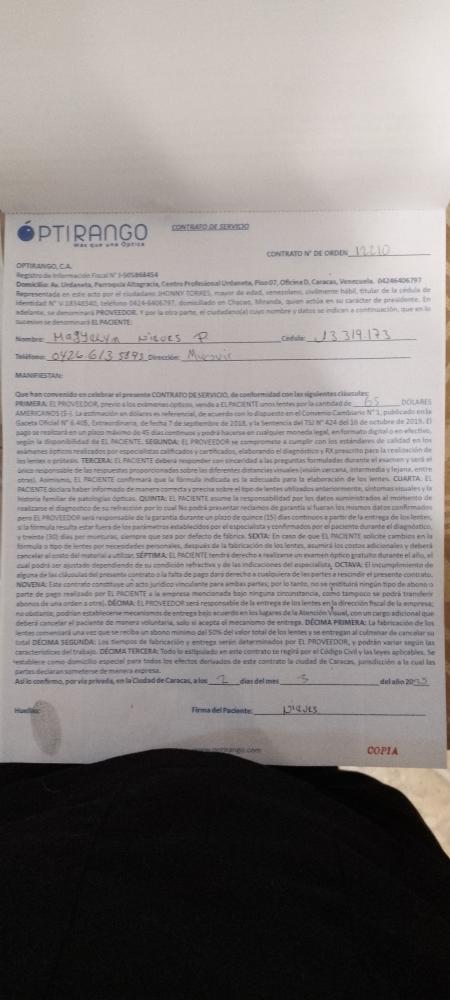 ÓPTIRANGO
Más que una Óptica
CONTRATO DE SERVICIO
CONTRATO N° DE ORDEN 12210
OPTIRANGO, C.A.
Registro de Información Fiscal N° J-505868454
Domicilio: Av. Urdaneta, Parroquia Altagracia, Centro Profesional Urdaneta, Piso 07, Oficina D, Caracas, Venezuela. 04246406797
Representada en este acto por el ciudadano JHONNY TORRES, mayor de edad, venezolano, civilmente hábil, titular de la cédula de
identidad N° V-28348540, teléfono 0424-6406797, domiciliado en Chacao, Miranda, quien actúa en su carácter de presidente. En
adelante, se denominará PROVEEDOR. Y por la otra parte, el ciudadano(a) cuyo nombre y datos se indican a continuación, que en lo
sucesivo se denominará EL PACIENTE:
Nombre: Nieves P. Cédula: 13 319.173
Teléfono: 0426 613 5893 Dirección:
MANIFIESTAN:
Que han convenido en celebrar el presente CONTRATO DE SERVICIO, de conformidad con las siguientes cláusulas:
PRIMERA: EL PROVEEDOR, previo a los exámenes ópticos, vende a EL PACIENTE unos lentes por la cantidad de 65 DÓLARES
AMERICANOS ($-). La estimación en dólares es referencial, de acuerdo con lo dispuesto en el Convenio Cambiario N° 1, publicado en la
Gaceta Oficial N° 6.405, Extraordinaria, de fecha 7 de septiembre de 2018, y la Sentencia del TSJ N° 424 del 16 de octubre de 2019. El
pago se realizará en un plazo máximo de 45 días continuos y podrá hacerse en cualquier moneda legal, en formato digital o en efectivo,
según la disponibilidad de EL PACIENTE. SEGUNDA: EL PROVEEDOR se compromete a cumplir con los estándares de calidad en los
exámenes ópticos realizados por especialistas calificados y certificados, elaborando el diagnóstico y RX prescrito para la realización de
los lentes o prótesis. TERCERA: EL PACIENTE deberá responder con sinceridad a las preguntas formuladas durante el examen y será el
único responsable de las respuestas proporcionadas sobre las diferentes distancias visuales (visión cercana, intermedia y lejana, entre
otras). Asimismo, EL PACIENTE confirmará que la fórmula indicada es la adecuada para la elaboración de los lentes. CUARTA: EL
PACIENTE declara haber informado de manera correcta y precisa sobre el tipo de lentes utilizados anteriormente, síntomas visuales y la
historia familiar de patologías ópticas. QUINTA: EL PACIENTE asume la responsabilidad por los datos suministrados al momento de
realizarse el diagnostico de su refracción por lo cual No podrá presentar reclamos de garantía si fueran los mismos datos confirmados
pero EL PROVEEDOR será responsable de la garantía durante un plazo de quince (15) días continuos a partir de la entrega de los lentes,
si la fórmula resulta estar fuera de los parámetros establecidos por el especialista y confirmados por el paciente durante el diagnóstico,
y treinta (30) días por monturas, siempre que sea por defecto de fábrica. SEXTA: En caso de que EL PACIENTE solicite cambios en la
fórmula o tipo de lentes por necesidades personales, después de la fabricación de los lentes, asumirá los costos adicionales y deberá
cancelar el costo del material a utilizar. SÉPTIMA: EL PACIENTE tendrá derecho a realizarse un examen óptico gratuito durante el año, el
cual podrá ser ajustado dependiendo de su condición refractiva y de las indicaciones del especialista. OCTAVA: El incumplimiento de
alguna de las cláusulas del presente contrato o la falta de pago dará derecho a cualquiera de las partes a rescindir el presente contrato.
NOVENA: Este contrato constituye un acto jurídico vinculante para ambas partes; por lo tanto, no se restituirá ningún tipo de abono o
parte de pago realizado por EL PACIENTE a la empresa mencionada bajo ninguna circunstancia, como tampoco se podrá transferir
abonos de una orden a otra). DÉCIMA: EL PROVEEDOR será responsable de la entrega de los lentes en la dirección fiscal de la empresa;
no obstante, podrían establecerse mecanismos de entrega bajo acuerdo en los lugares de la Atención Visual, con un cargo adicional que
deberá cancelar el paciente de manera voluntaria, solo si acepta el mecanismo de entrega. DÉCIMA PRIMERA: La fabricación de los
lentes comenzará una vez que se reciba un abono mínimo del 50% del valor total de los lentes y se entregan al culminar de cancelar su
total DÉCIMA SEGUNDA: Los tiempos de fabricación y entrega serán determinados por EL PROVEEDOR, y podrán variar según las
características del trabajo. DÉCIMA TERCERA: Todo lo estipulado en este contrato se regirá por el Código Civil y las leyes aplicables. Se
establece como domicilio especial para todos los efectos derivados de este contrato la ciudad de Caracas, jurisdicción a la cual las
partes declaran someterse de manera expresa.
Así lo confirmo, por vía privada, en la Ciudad de Caracas, a los 2 días del mes 3 del año 2025
Huellas: Firma del Paciente: Nieves
www.optirango.com
COPIA